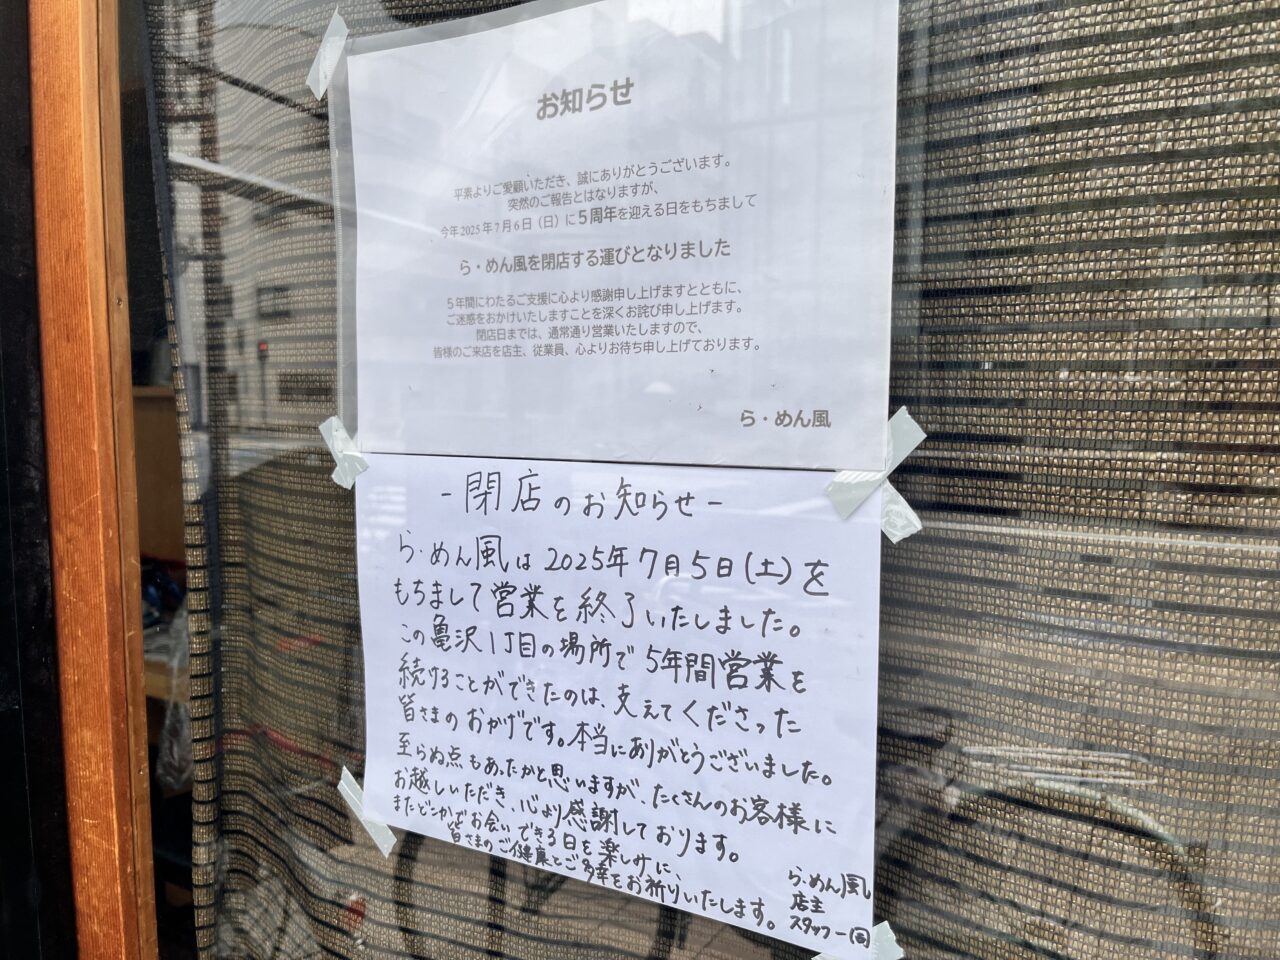 お知らせ
平素よりご愛顧いただき、誠にありがとうございます。
突然のご報告とはなりますが、
今年2025年7月6日（日）に5周年を迎える日をもちまして
ら・めん風を閉店する運びとなりました
5年間にわたるご支援に心より感謝申し上げますとともに、
ご迷惑をおかけいたしますことを深くお詫び申し上げます。
閉店日までは、通常通り営業いたしますので、
皆様のご来店を店主、従業員、心よりお待ち申し上げております。
ら・めん風
-閉店のお知らせ-
ら・めん風は2025年7月5日(土)を
もちまして営業を終了いたしました。
この亀沢1丁目の場所で5年間営業を
続けることができたのは、支えてくださった
皆さまのおかげです。本当にありがとうございました。
至らぬ点もあったかと思いますが、たくさんのお客様に
お越しいただき、心より感謝しております。
またどこかでお会いできる日を楽しみに、
皆さまのご健康とご多幸をお祈りいたします。
ら・めん風
店主
スタッフ一同